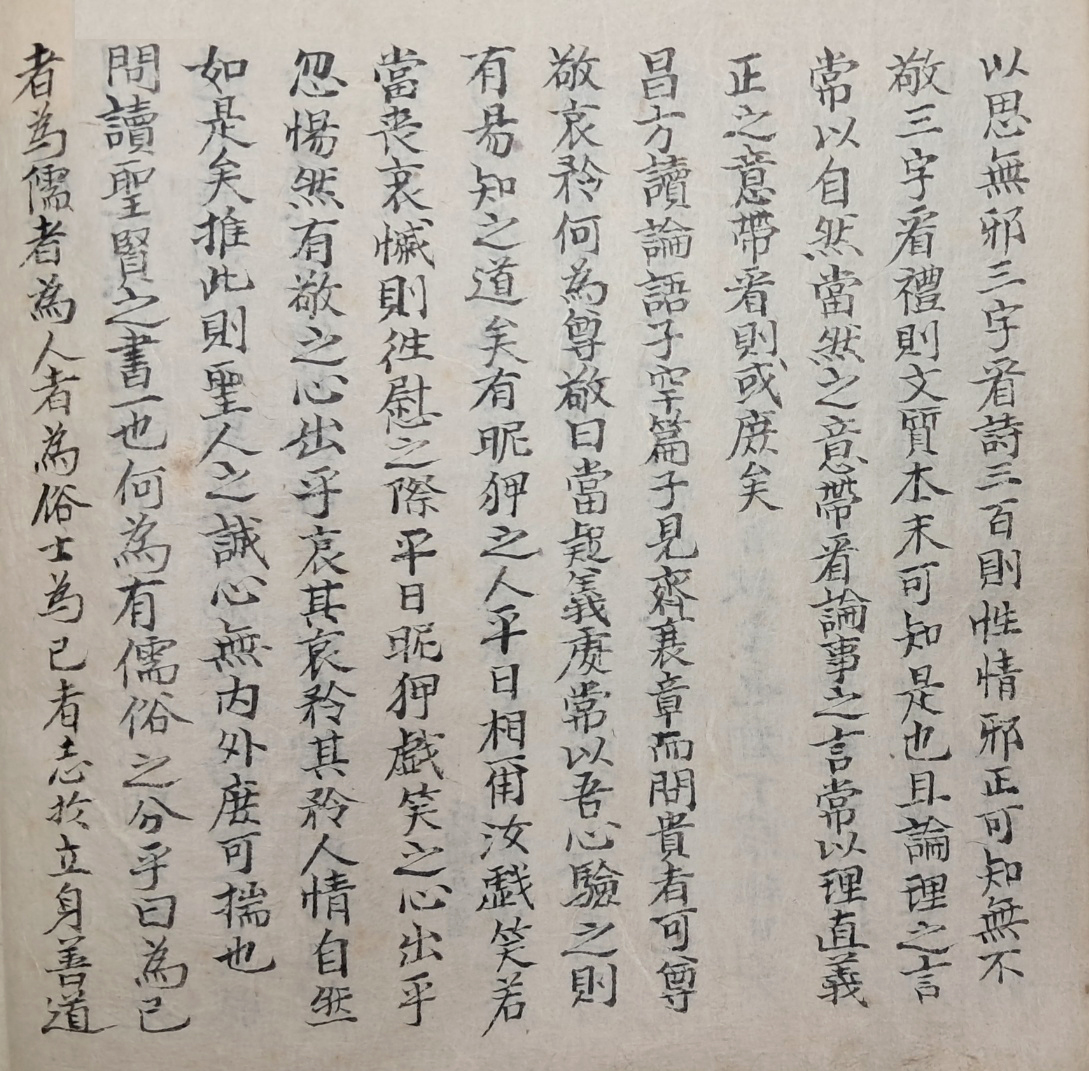 以思無邪三字看詩三百則性情邪正可知無不
敬三字看禮則文質本末可知是也且論理之言
常以自然當然之意帶看論事之言常以理直義
正之意帶看則或庶矣
昌方讀論語子罕篇子見齊衰章而問貴者可尊
敬哀矜何為尊敬曰當疑義處常以吾心驗之則
有易知之道矣有昵狎之人平日相爾汝戱笑若
當喪哀慽則往慰之際平日昵狎戱笑之心出乎
忽惕然有敬之心出乎哀其哀矜其矜人情自然
如是矣推此則聖人之誠心無内外庶可揣也
問讀聖賢之書一也何為有儒俗之分乎曰為己
者為儒者為人者為俗士為己者志於立身善道